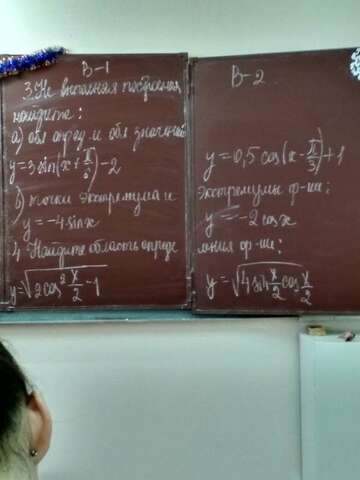 В-1
3. Не выполняя построения
найдите:
а) обл. опред. и обл. значений
y = 3 sin(x + π/3) - 2
б) точки экстремума и
y = -4 sin x
4. Найдите область опреде
y = √(2 cos² x/2 - 1)
В-2
y = 0,5 cos(x - π/3) + 1
экстремумы ф-ии:
y = -2 cos x
ления ф-ии:
y = √(4 sin x/2 cos x/2)